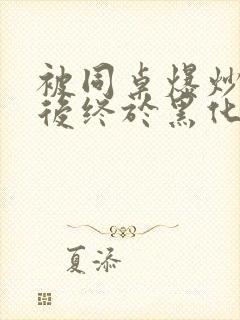 被同桌爆炒
後终於黑化
夏添